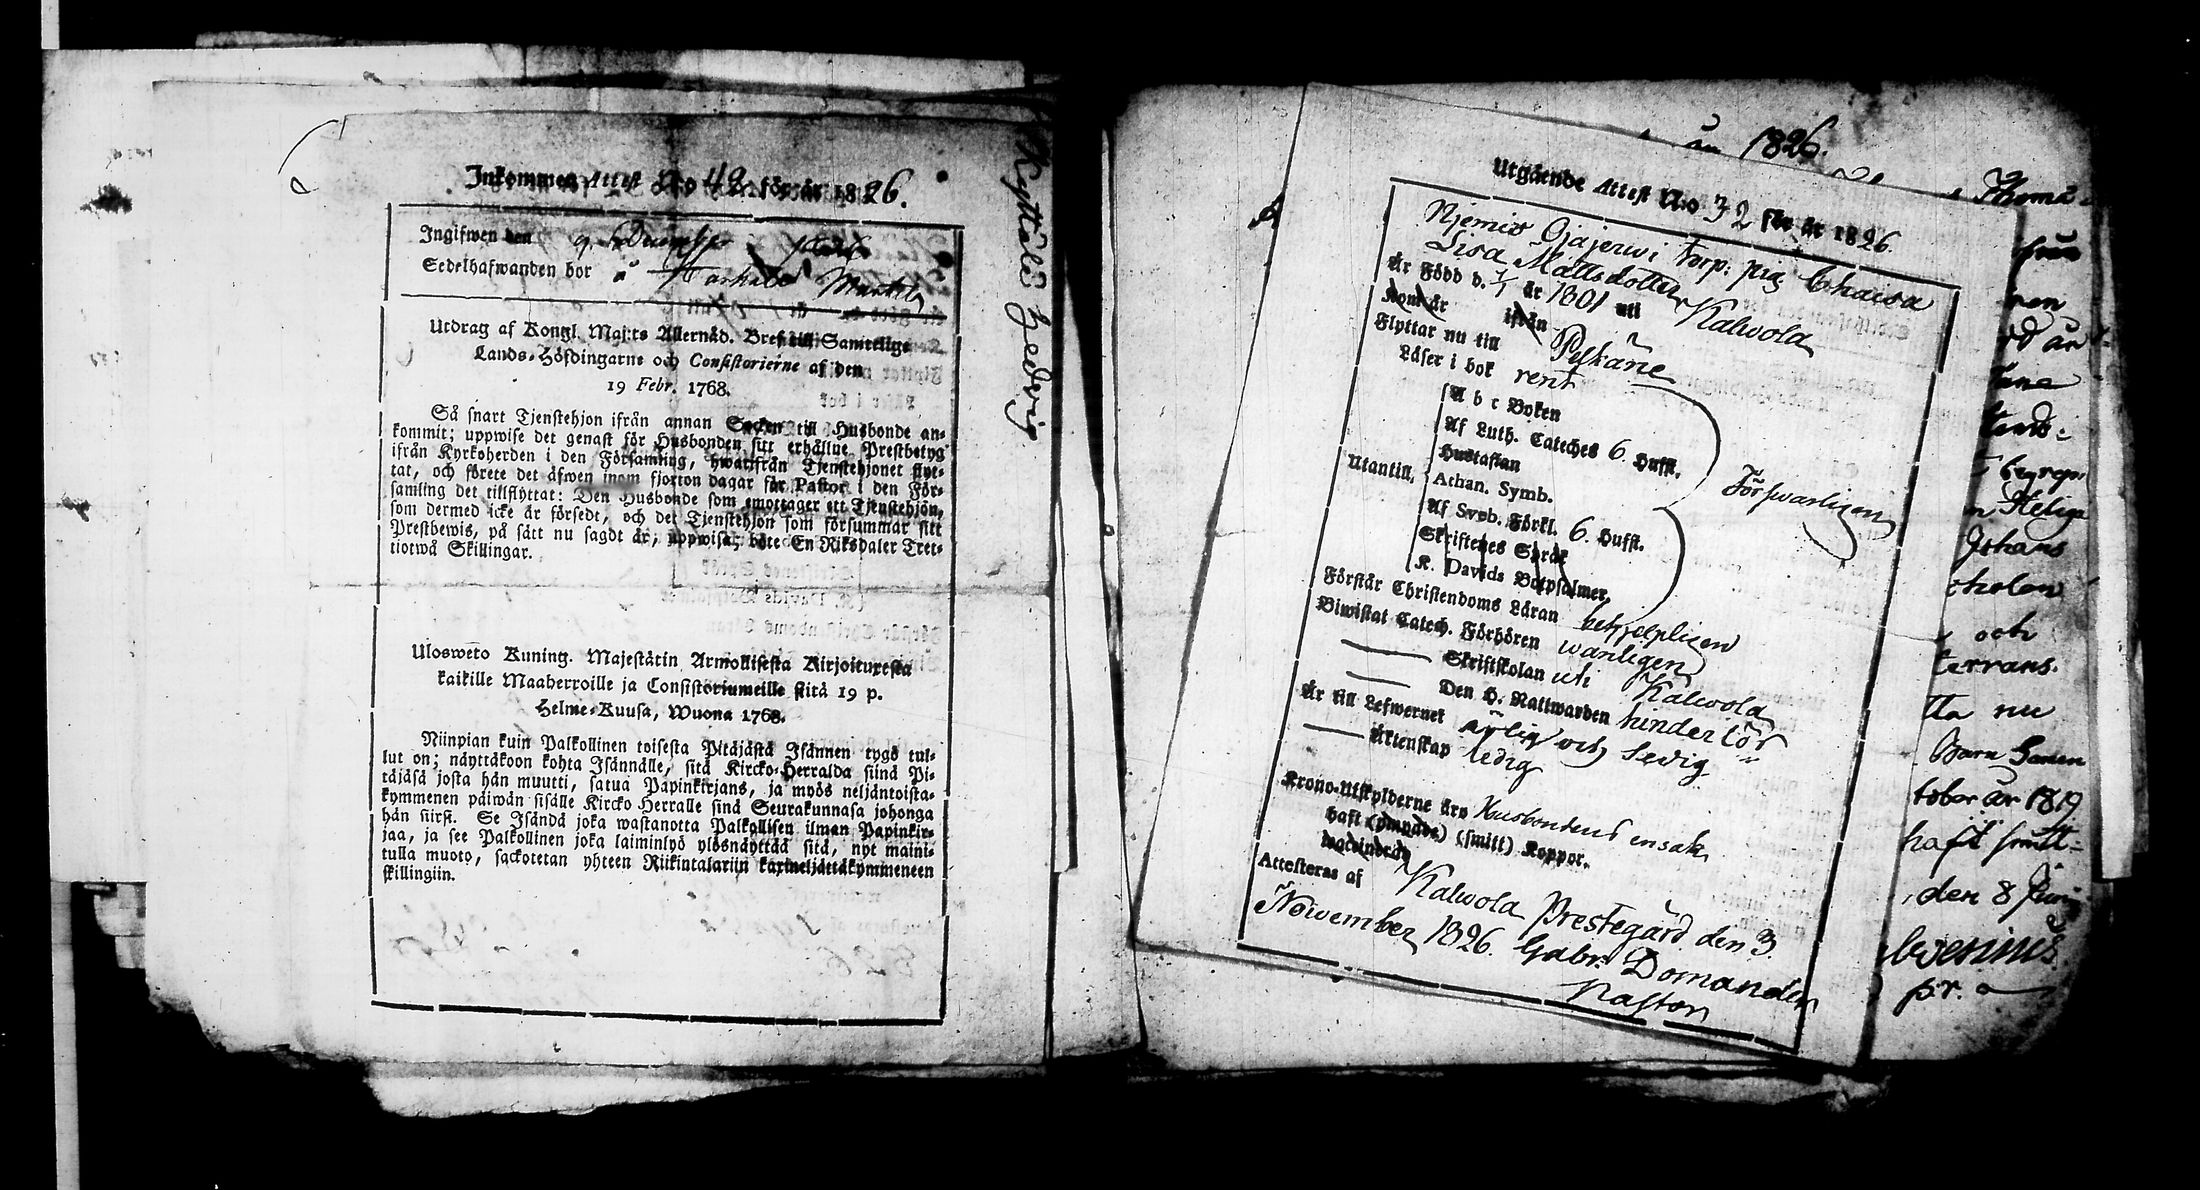 Inkommen Attest N:o 42 för år 1826.
Ingifwen den 9 December
Sedelhafwanden bor å
Utdrag af Kongl. Maj:ts Allernåd. Bref till Samtelige
Lands-Höfdingarne och Consistorierne af den
19 Febr. 1768.
Så snart Tjenstehjon ifrån annan Socken till Husbonde an-
kommit; uppwise det genast för Husbonden sitt erhållne Prestbetyg
ifrån Kyrkoherden i den Församling, hwarifrån Tjenstehjonet flyt-
tat, och förete det äfwen inom fjorton dagar för Pastor i den För-
samling det tillflyttat: Den Husbonde som emottager ett Tjenstehjon,
som dermed icke är försedt, och det Tjenstehjon som försummar sitt
Prestbewis, på sätt nu sagdt är, uppwisa, böte En Riksdaler Tret-
tiotwå Skillingar.
Ulosweto Kuning. Majestätin Armollisesta Kirjoituxesta
kaikille Maaherroille ja Consistoriumeille siitä 19 p.
Helme-Kuusa, Wuona 1768.
Niinpian kuin Palkollinen toisesta Pitäjästä Isännen tygö tul-
lut on; näyttäkoon kohta Isännälle, sitä Kircko-Herralda siinä Pi-
täjäsä josta hän muutti, saatua Papinkirjans, ja myös neljäntoista-
kymmenen päiwän sisälle Kircko Herralle sinä Seurakunnasa johonga
hän siirst. Se Isändä joka wastanotta Palkollisen ilman Papinkir-
jaa, ja see Palkollinen joka laiminlyö ylösnäyttää sitä, nyt maini-
tulla muoto, sackotetan yhteen Riikintalariin kaxineljättäkymmeneen
skillingiin.
Kyttälä Hedvig
1826.
Utgående Attest N:o 32 för år 1826.
Njemis Ojajerwi torp: pig: Chaisa
Lisa Mattsdotter
Är Född d. 1/1 år 1801 uti Kalwola
Kom år ifrån
Flyttar nu till Pelkäne
Läser i bok rent
A b c Boken
Af Luth. Cateches 6 Hufst.
Hustaflan
Utantill, Athan. Symb.
Af Sveb. Förkl. 6. Hufst.
Skriftenes Språk
K. Davids Botpsalmer,
Förswarligen
Förstår Christendoms Läran behjelpligen
Biwistat Catech. Förhören wanligen
Skriftskolan uti Kalwola
Den H. Nattwarden hinderlös
Är till Lefwernet ärlig och sedig
Äktenskap ledig
Krono-Utskylderne äro Husbondens ensak
Haft (ympade) (smitt) Koppor.
Attesteras af Kalwola Prestegård den 3.
November 1826. Gabr. Domander
Pastor
Thoma
Helige
Johans
och
nu
tober år 1819
haft smitt-
den 8 Juni
pr.